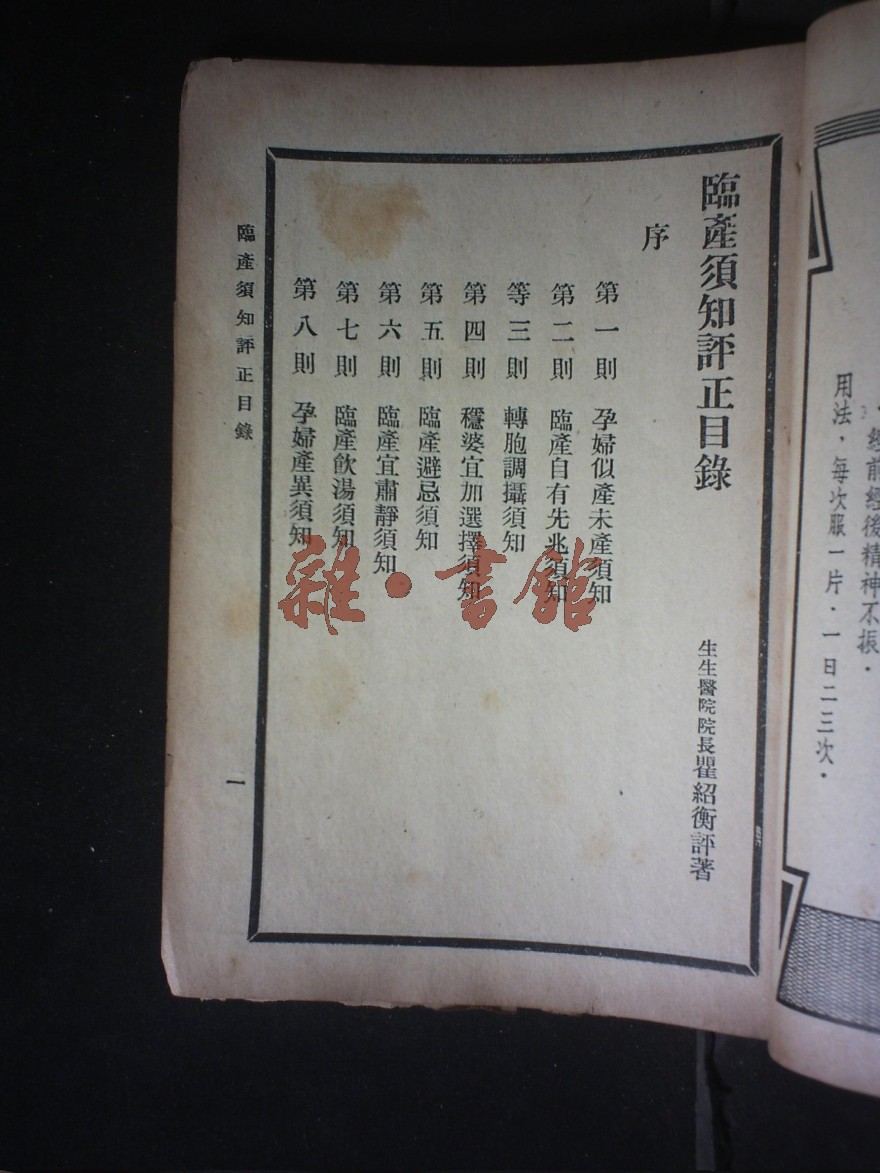 臨產須知評正目錄
生生醫院院長瞿紹衡評著
序
第一則 孕婦似產未產須知
第二則 臨產自有先兆須知
等三則 轉胞調攝須知
第四則 穩婆宜加選擇須知
第五則 臨產避忌須知
第六則 臨產宜肅靜須知
第七則 臨產飲湯須知
第八則 孕婦產異須知
臨產須知評正目錄
一
經前經後精神不振．
用法．每次服一片．一日二三次．
雜·書館